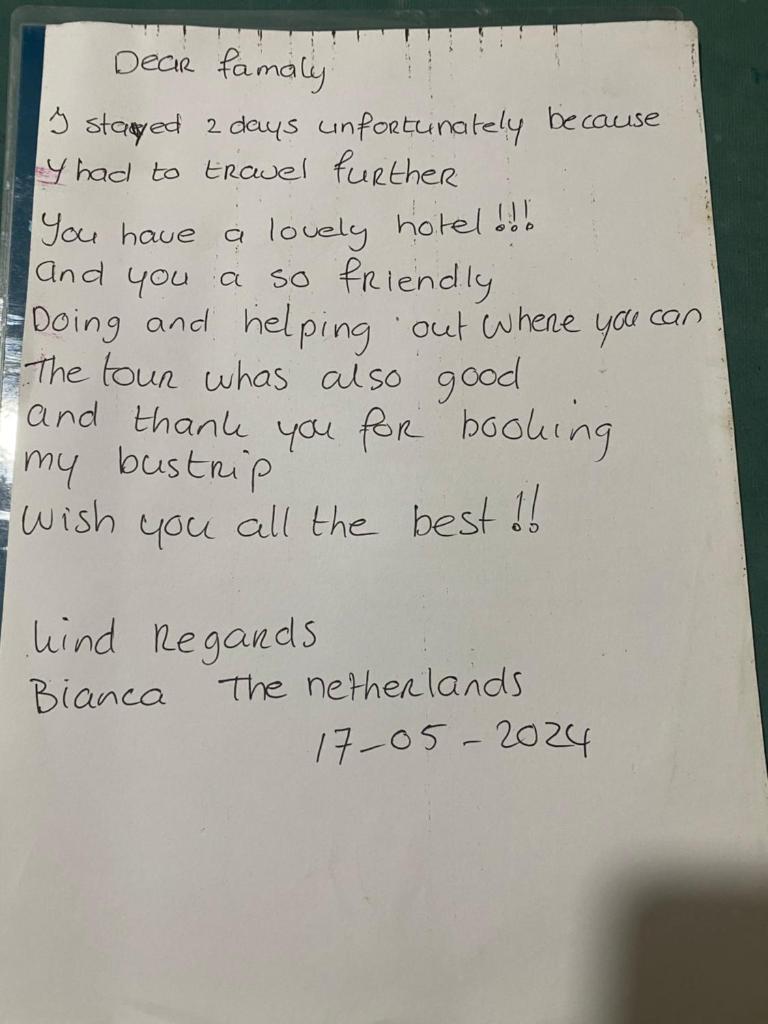 Dear famaly
I stayed 2 days unfortunately because
I had to travel further
You have a lovely hotel !!!
and you a so friendly
Doing and helping out where you can
The tour whas also good
and thank you for booking
my bustrip
wish you all the best !!
kind Regards
Bianca The netherlands
17-05-2024